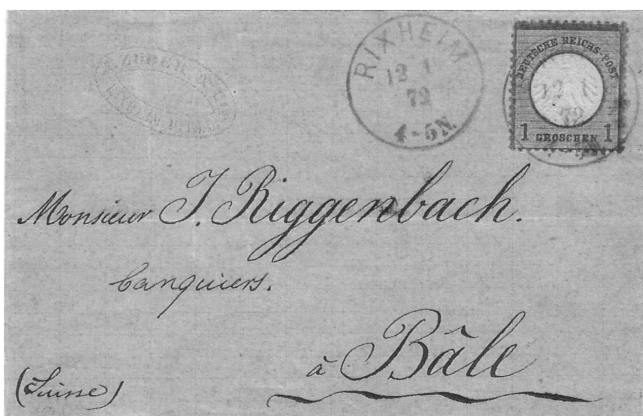 RIXHEIM
12 1
72
4-5N.
DEUTSCHE REICHS-POST
1 GROSCHEN 1
12 1
72
Monsieur J. Riggenbach.
banquiers.
à Bâle
(Suisse)